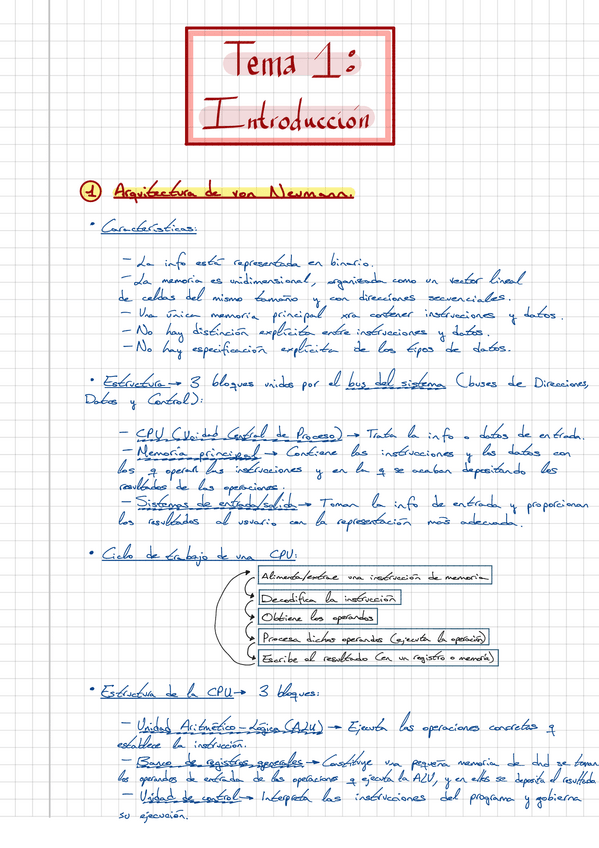 Tema 1:
Introducción
1 Arquitectura de von Neumann.
• Características:
- La info está representada en binario.
- La memoria es unidimensional, organizada como un vector lineal
de celdas del mismo tamaño y con direcciones secuenciales.
- Una única memoria principal xra contener instrucciones y datos.
- No hay distinción explícita entre instrucciones y datos.
- No hay especificación explícita de los tipos de datos.
• Estructura → 3 bloques unidos por el bus del sistema (buses de Direcciones,
Datos y Control):
- CPU (Unidad Central de Proceso) → Trata la info o datos de entrada.
- Memoria principal → Contiene las instrucciones y los datos con
los q operan las instrucciones y en la q se acaban depositando los
resultados de las operaciones.
- Sistemas de entrada/salida → Toman la info de entrada y proporcionan
los resultados al usuario con la representación más adecuada.
• Ciclo de trabajo de una CPU:
Alimenta/extrae una instrucción de memoria
Decodifica la instrucción
Obtiene los operandos
Procesa dichos operandos (ejecuta la operación)
Escribe el resultado (en un registro o memoria)
• Estructura de la CPU → 3 bloques:
- Unidad Aritmético-Lógica (ALU) → Ejecuta las operaciones concretas q
establece la instrucción.
- Banco de registros generales → Constituye una pequeña memoria de dnd se toman
los operandos de entrada de las operaciones q ejecuta la ALU, y en ellos se deposita el resultado
- Unidad de control → Interpreta las instrucciones del programa y gobierna
su ejecución.